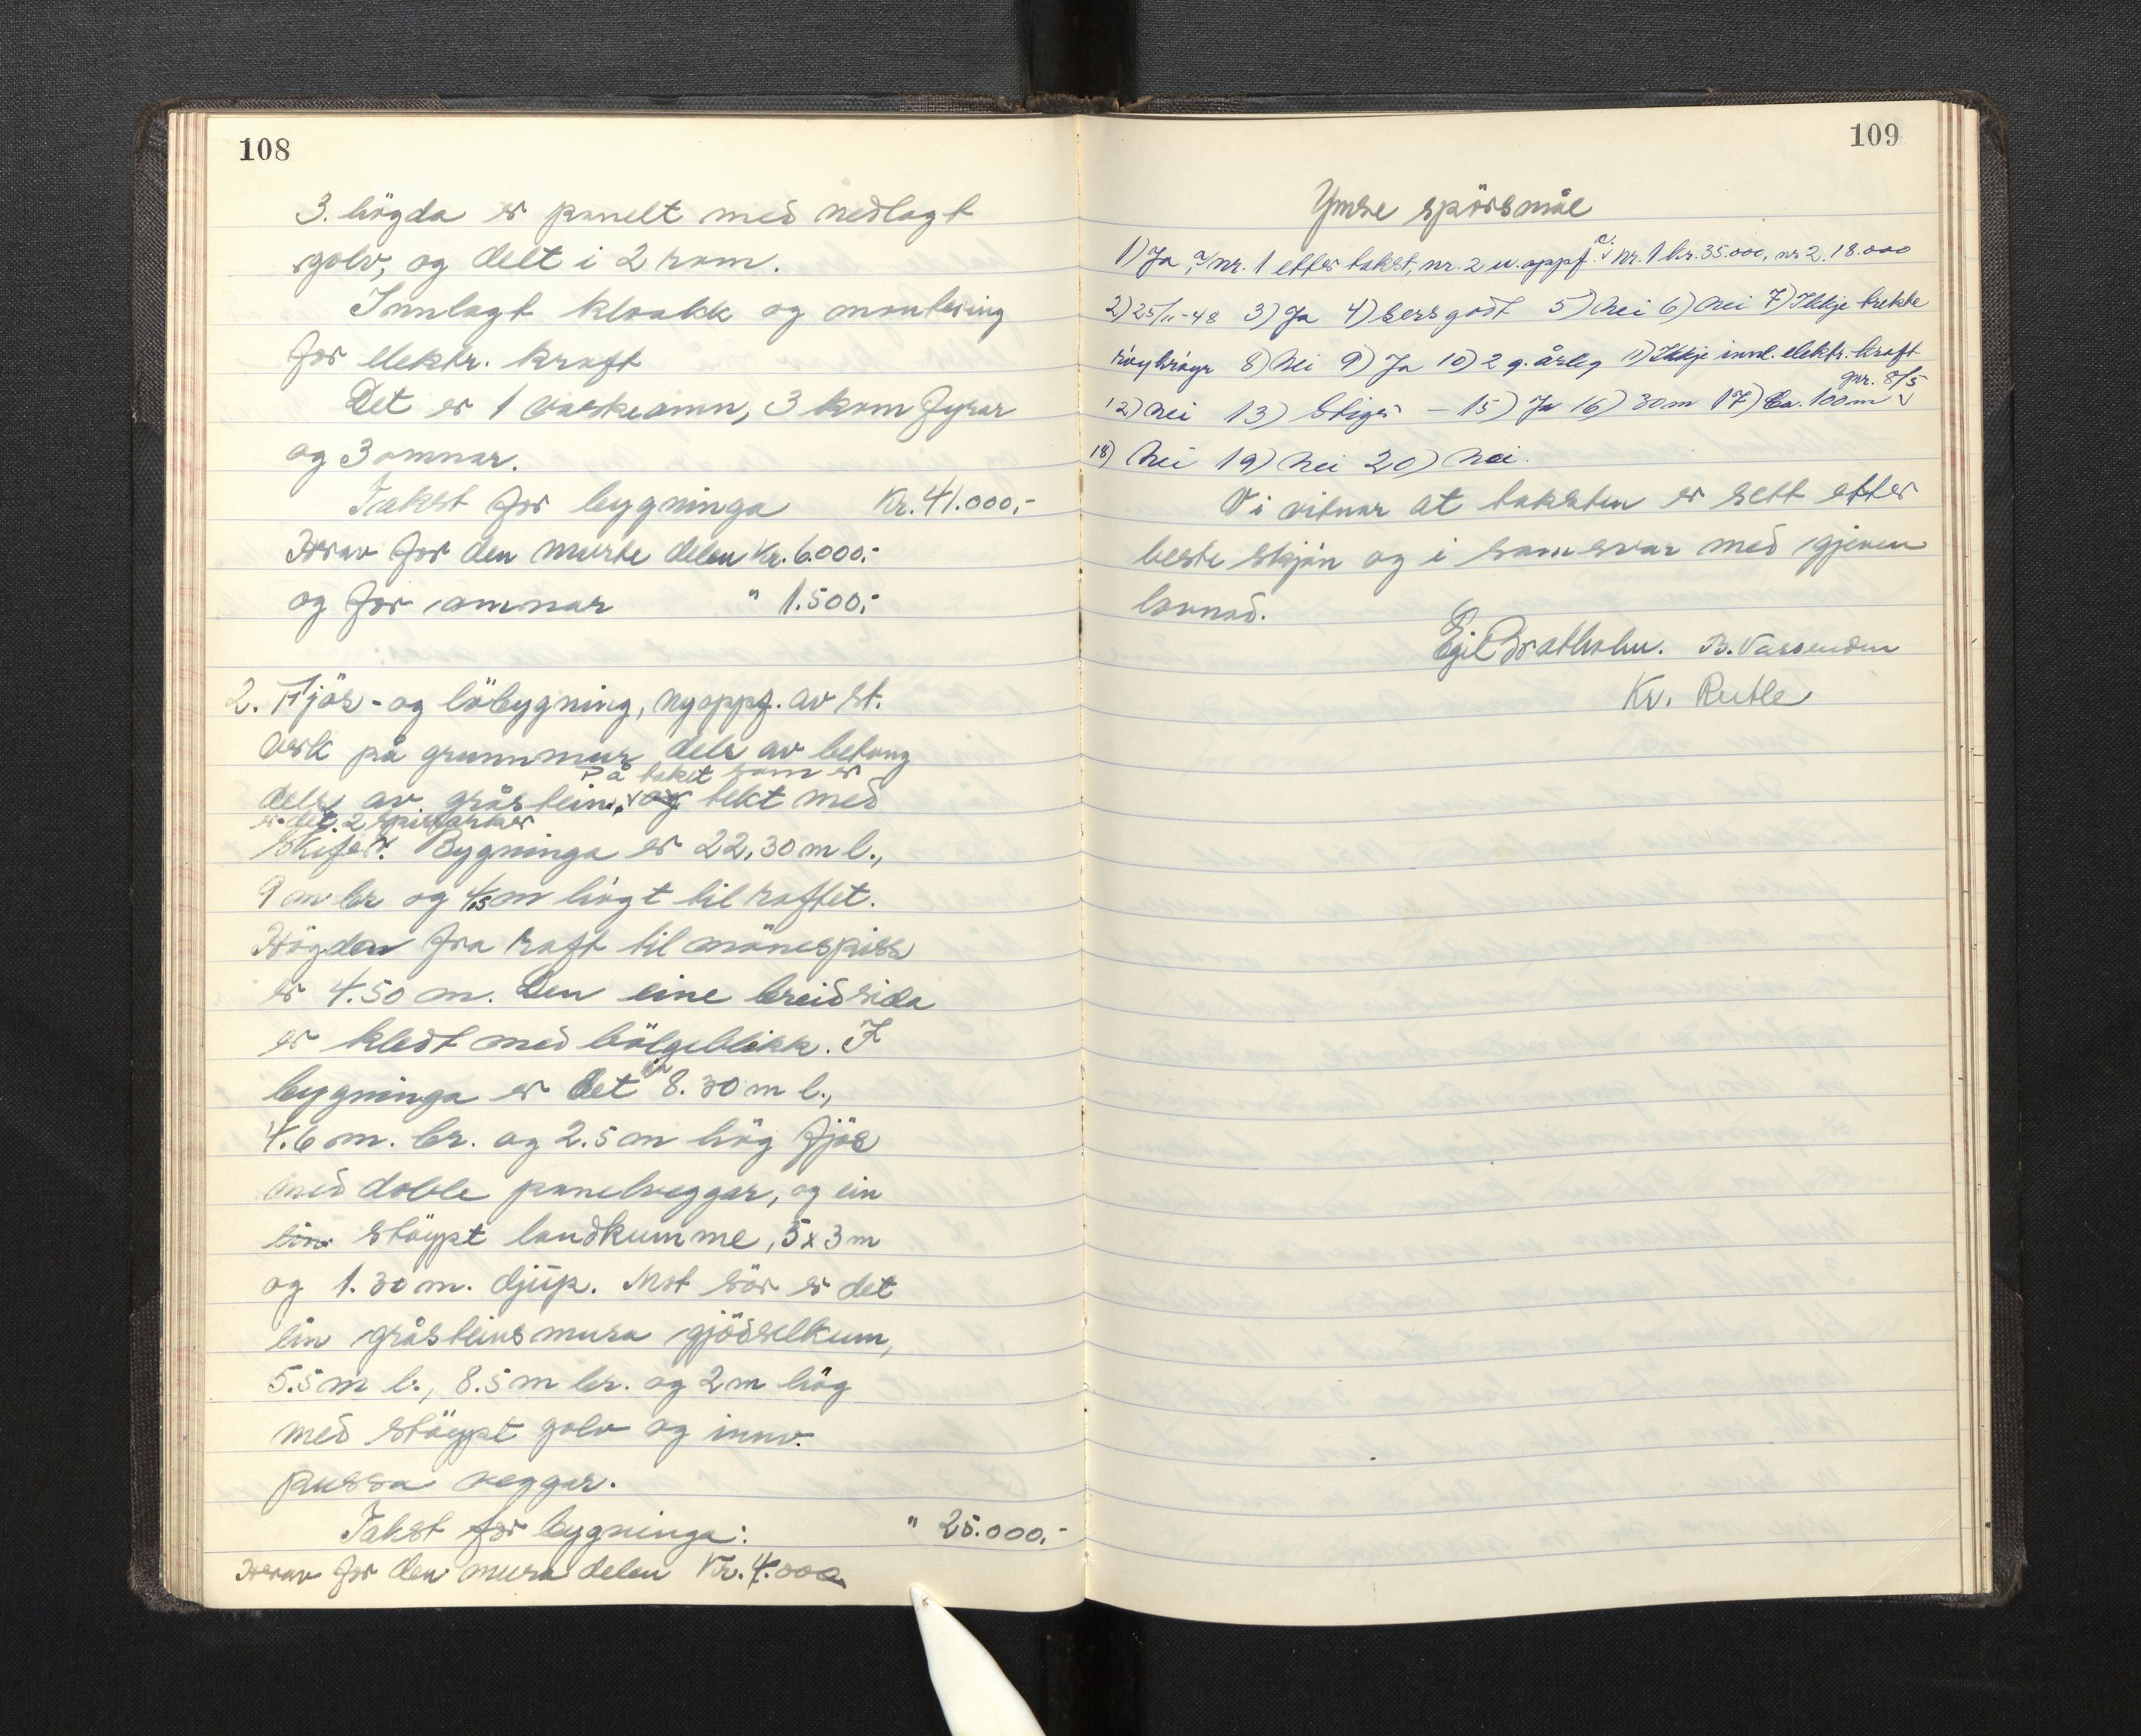 108
3. högda er panelt med nedlagt
golv, og delt i 2 rom.
Innlagt kloakk og montering
for elektr. kraft
Det er 1 vaskeomn, 3 komfyrar
og 3 omnar.
Takst for bygninga Kr. 41.000,-
Herav for den murte delen Kr. 6.000,-
og for omnar " 1.500,-
2. Fjös- og löbygning, nyoppf. av st.
verk på grunnmur dels av betong
på taket som er
dels av gråstein, og tekt med
er det 2 spissarker
skifer. Bygninga er 22,30 m l.,
9 m br og 4,5 m högt til raftet.
Högden fra raft til mönespiss
er 4.50 m. Den eine breidsida
er kledt med bölgeblikk. I
bygninga er det in 8.30 m l.,
4.6 m. br. og 2.5 m hög fjös
med doble panelveggar, og ein
ein stöypt landkumme, 5 x 3 m
og 1.30 m. djup. Mot sör er det
ein gråsteinsmura gjödselkum,
5.5 m l., 8.5 m br. og 2 m hög
med stöypt golv og innv.
pussa veggar.
Takst for bygninga: " 25.000,-
Herav for den mura delen Kr. 4.000
109
Ymse spörsmål
1) Ja, nr. 1 etter takst, nr. 2 u. oppf. nr. 1 kr. 35.000, nr 2. 18.000
2) 25/11-48 3) Ja 4) Sers godt 5) Nei 6) Nei 7) Ikkje trekte
röykröyr 8) Nei 9) Ja 10) 2 g. årleg 11) Ikkje innl. elektr. kraft
pr. 8/5
12) Nei 13) Stiger – 15) Ja 16) 30 m 17) Ca. 100 m
18) Nei 19) Nei 20) Nei.
Vi vitnar at taksten er sett etter
beste skjön og i samsvar med gjeven
lovnad.
Egil Bratholm. B. Vassenden
Kr. Rutle